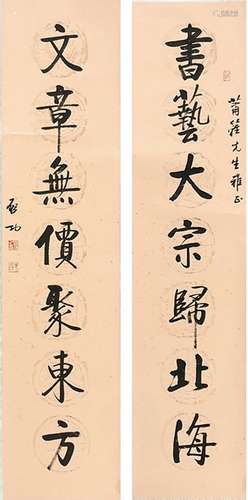 書藝大宗歸北海
先生雅正
文章無價聚東方
啟功